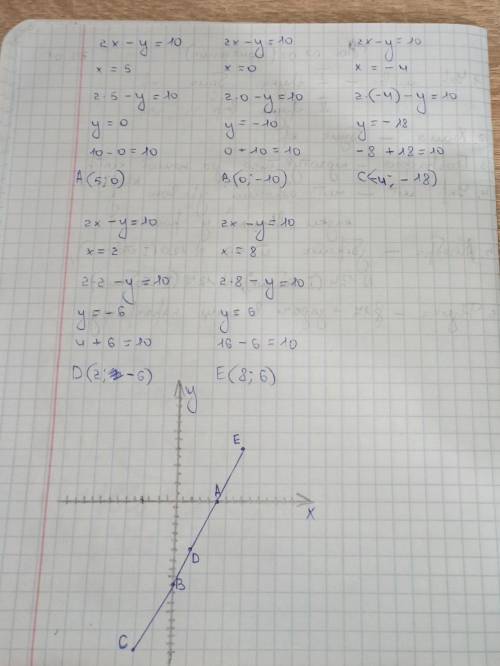 2x - y = 10
x = 5
2·5 - y = 10
y = 0
10 - 0 = 10
A(5; 0)
2x - y = 10
x = 0
2·0 - y = 10
y = -10
0 + 10 = 10
B(0; -10)
2x - y = 10
x = -4
2·(-4) - y = 10
y = -18
-8 + 18 = 10
C(-4; -18)
2x - y = 10
x = 2
2·2 - y = 10
y = -6
4 + 6 = 10
D(2; -6)
2x - y = 10
x = 8
2·8 - y = 10
y = 6
16 - 6 = 10
E(8; 6)
y
E
A
x
D
B
C